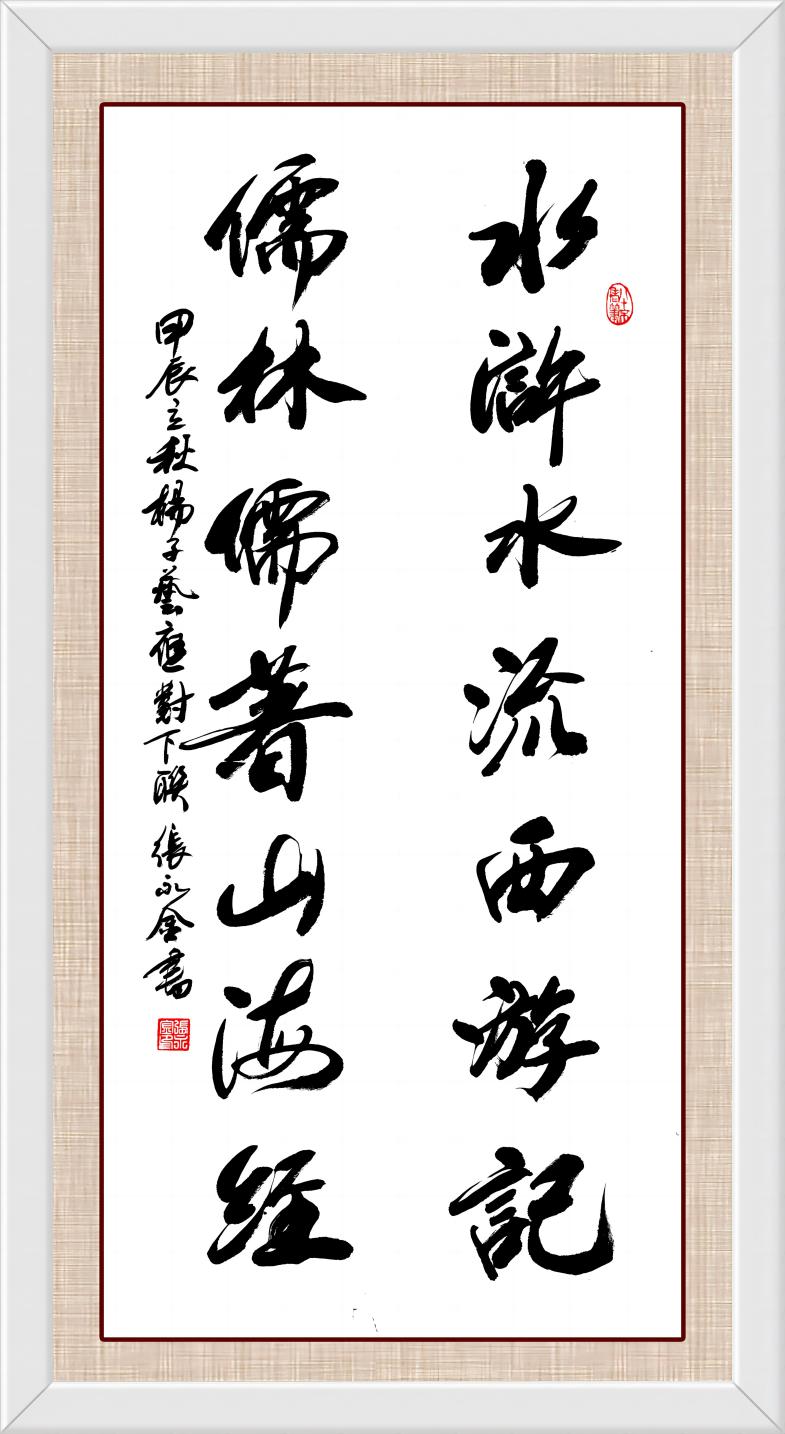 水滸水流西游記
儒林儒著山海經
甲辰立秋楊子藝應對下聯張永金書